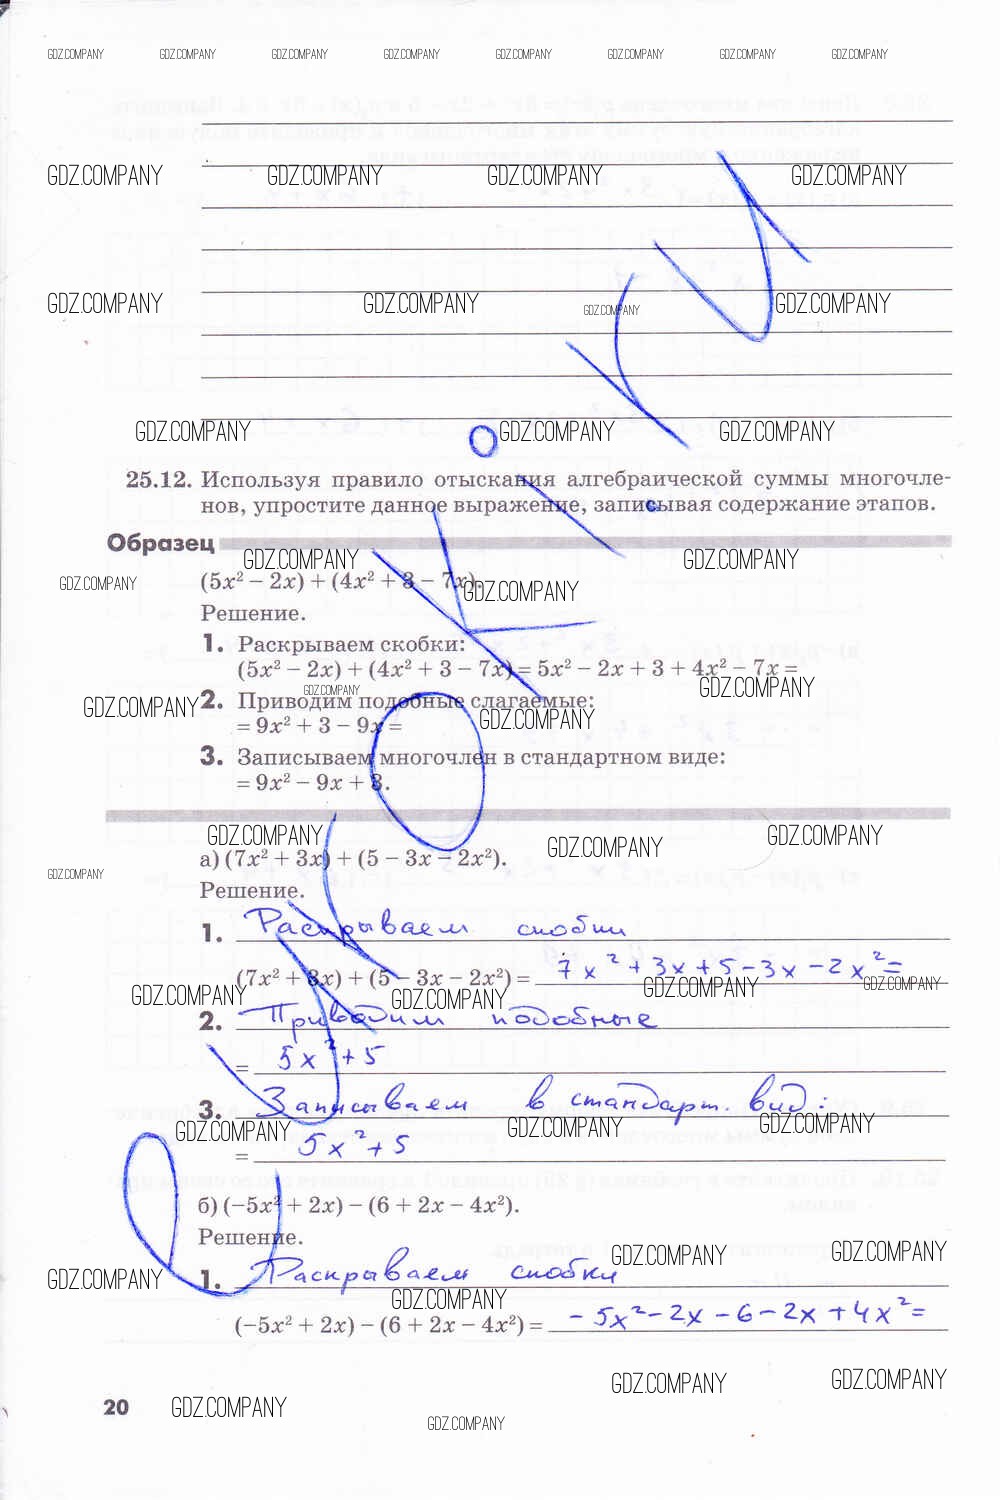 GDZ.COMPANY GDZ.COMPANY GDZ.COMPANY GDZ.COMPANY GDZ.COMPANY GDZ.COMPANY GDZ.COMPANY GDZ.COMPANY
GDZ.COMPANY GDZ.COMPANY GDZ.COMPANY GDZ.COMPANY
GDZ.COMPANY GDZ.COMPANY GDZ.COMPANY GDZ.COMPANY
GDZ.COMPANY GDZ.COMPANY GDZ.COMPANY
25.12. Используя правило отыскания алгебраической суммы многочле-
нов, упростите данное выражение, записывая содержание этапов.
Образец
GDZ.COMPANY GDZ.COMPANY
GDZ.COMPANY (5x² − 2x) + (4x² + 3 − 7x). GDZ.COMPANY
Решение.
1. Раскрываем скобки:
(5x² − 2x) + (4x² + 3 − 7x) = 5x² − 2x + 3 + 4x² − 7x =
GDZ.COMPANY GDZ.COMPANY
GDZ.COMPANY 2. Приводим подобные слагаемые: GDZ.COMPANY
= 9x² + 3 − 9x =
3. Записываем многочлен в стандартном виде:
= 9x² − 9x + 3.
GDZ.COMPANY GDZ.COMPANY GDZ.COMPANY
а) (7x² + 3x) + (5 − 3x − 2x²).
GDZ.COMPANY Решение.
1. Раскрываем скобки
(7x² + 3x) + (5 − 3x − 2x²) = 7x² + 3x + 5 − 3x − 2x² =
GDZ.COMPANY GDZ.COMPANY GDZ.COMPANY GDZ.COMPANY
2. Приводим подобные
= 5x² + 5
3. Записываем в стандарт. вид:
GDZ.COMPANY GDZ.COMPANY GDZ.COMPANY
= 5x² + 5
б) (−5x² + 2x) − (6 + 2x − 4x²).
Решение.
GDZ.COMPANY GDZ.COMPANY
GDZ.COMPANY 1. Раскрываем скобки
GDZ.COMPANY
(−5x² + 2x) − (6 + 2x − 4x²) = − 5x² − 2x − 6 − 2x + 4x² =
GDZ.COMPANY GDZ.COMPANY
20 GDZ.COMPANY
GDZ.COMPANY